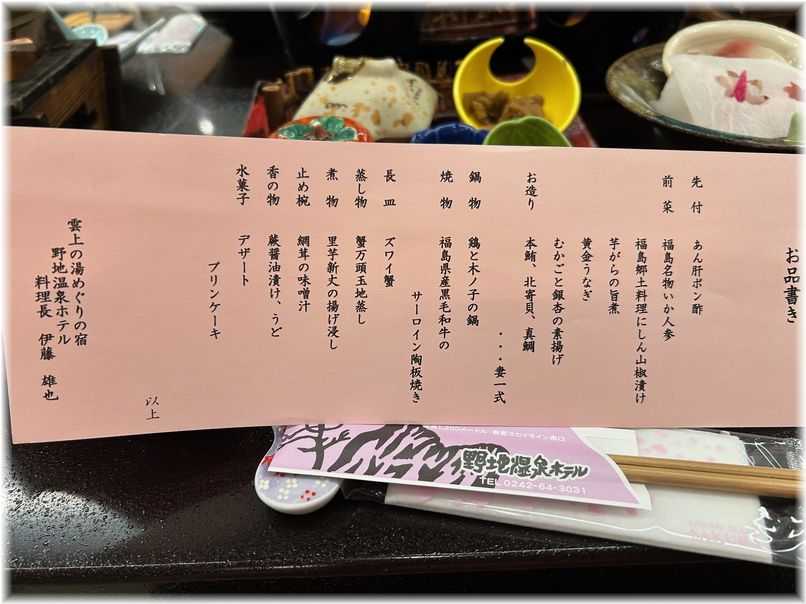 お品書き
先付 あん肝ポン酢
前菜 福島名物いか人参
福島郷土料理にしん山椒漬け
芋がらの旨煮
黄金うなぎ
むかごと銀杏の素揚げ
お造り 本鮪、北寄貝、真鯛
・・・妻一式
鍋物 鶏と木ノ子の鍋
焼物 福島県産黒毛和牛の
サーロイン陶板焼き
長皿 ズワイ蟹
蒸し物 蟹万頭玉地蒸し
煮物 里芋新丈の揚げ浸し
止め椀 網茸の味噌汁
香の物 蕨醤油漬け、うど
水菓子 デザート
プリンケーキ
以上
雲上の湯めぐりの宿
野地温泉ホテル
料理長 伊藤 雄也
野地温泉ホテル
TEL 0242-64-3031